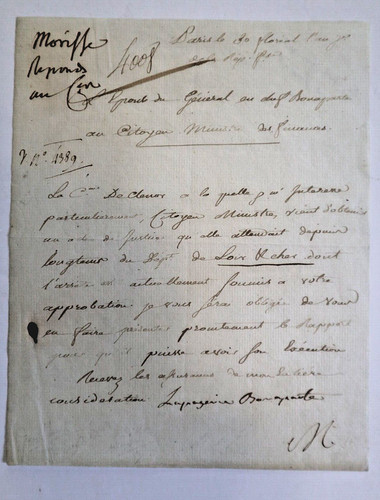 Paris le 30 floreal l'an 7e
de la Rep. fse
Reponds
au Cen
4008
du Général en chef Bonaparte
au Citoyen Ministre des finances
No. 4389
La Cenne Declanor à la quelle je m'interesse
particulierement, Citoyen Ministre, vient d'obtenir
un acte de Justice qu'elle attendait depuis
longtems du Dept. de Loir & cher dont
l'arrêté est actuellement soumis a votre
approbation je vous serai obligée de vous
en faire présenter promtement le Rapport
pour qu'il puisse avoir son Exécution
Recevez les assurances de ma Entiere
considération Lapagerie Bonaparte